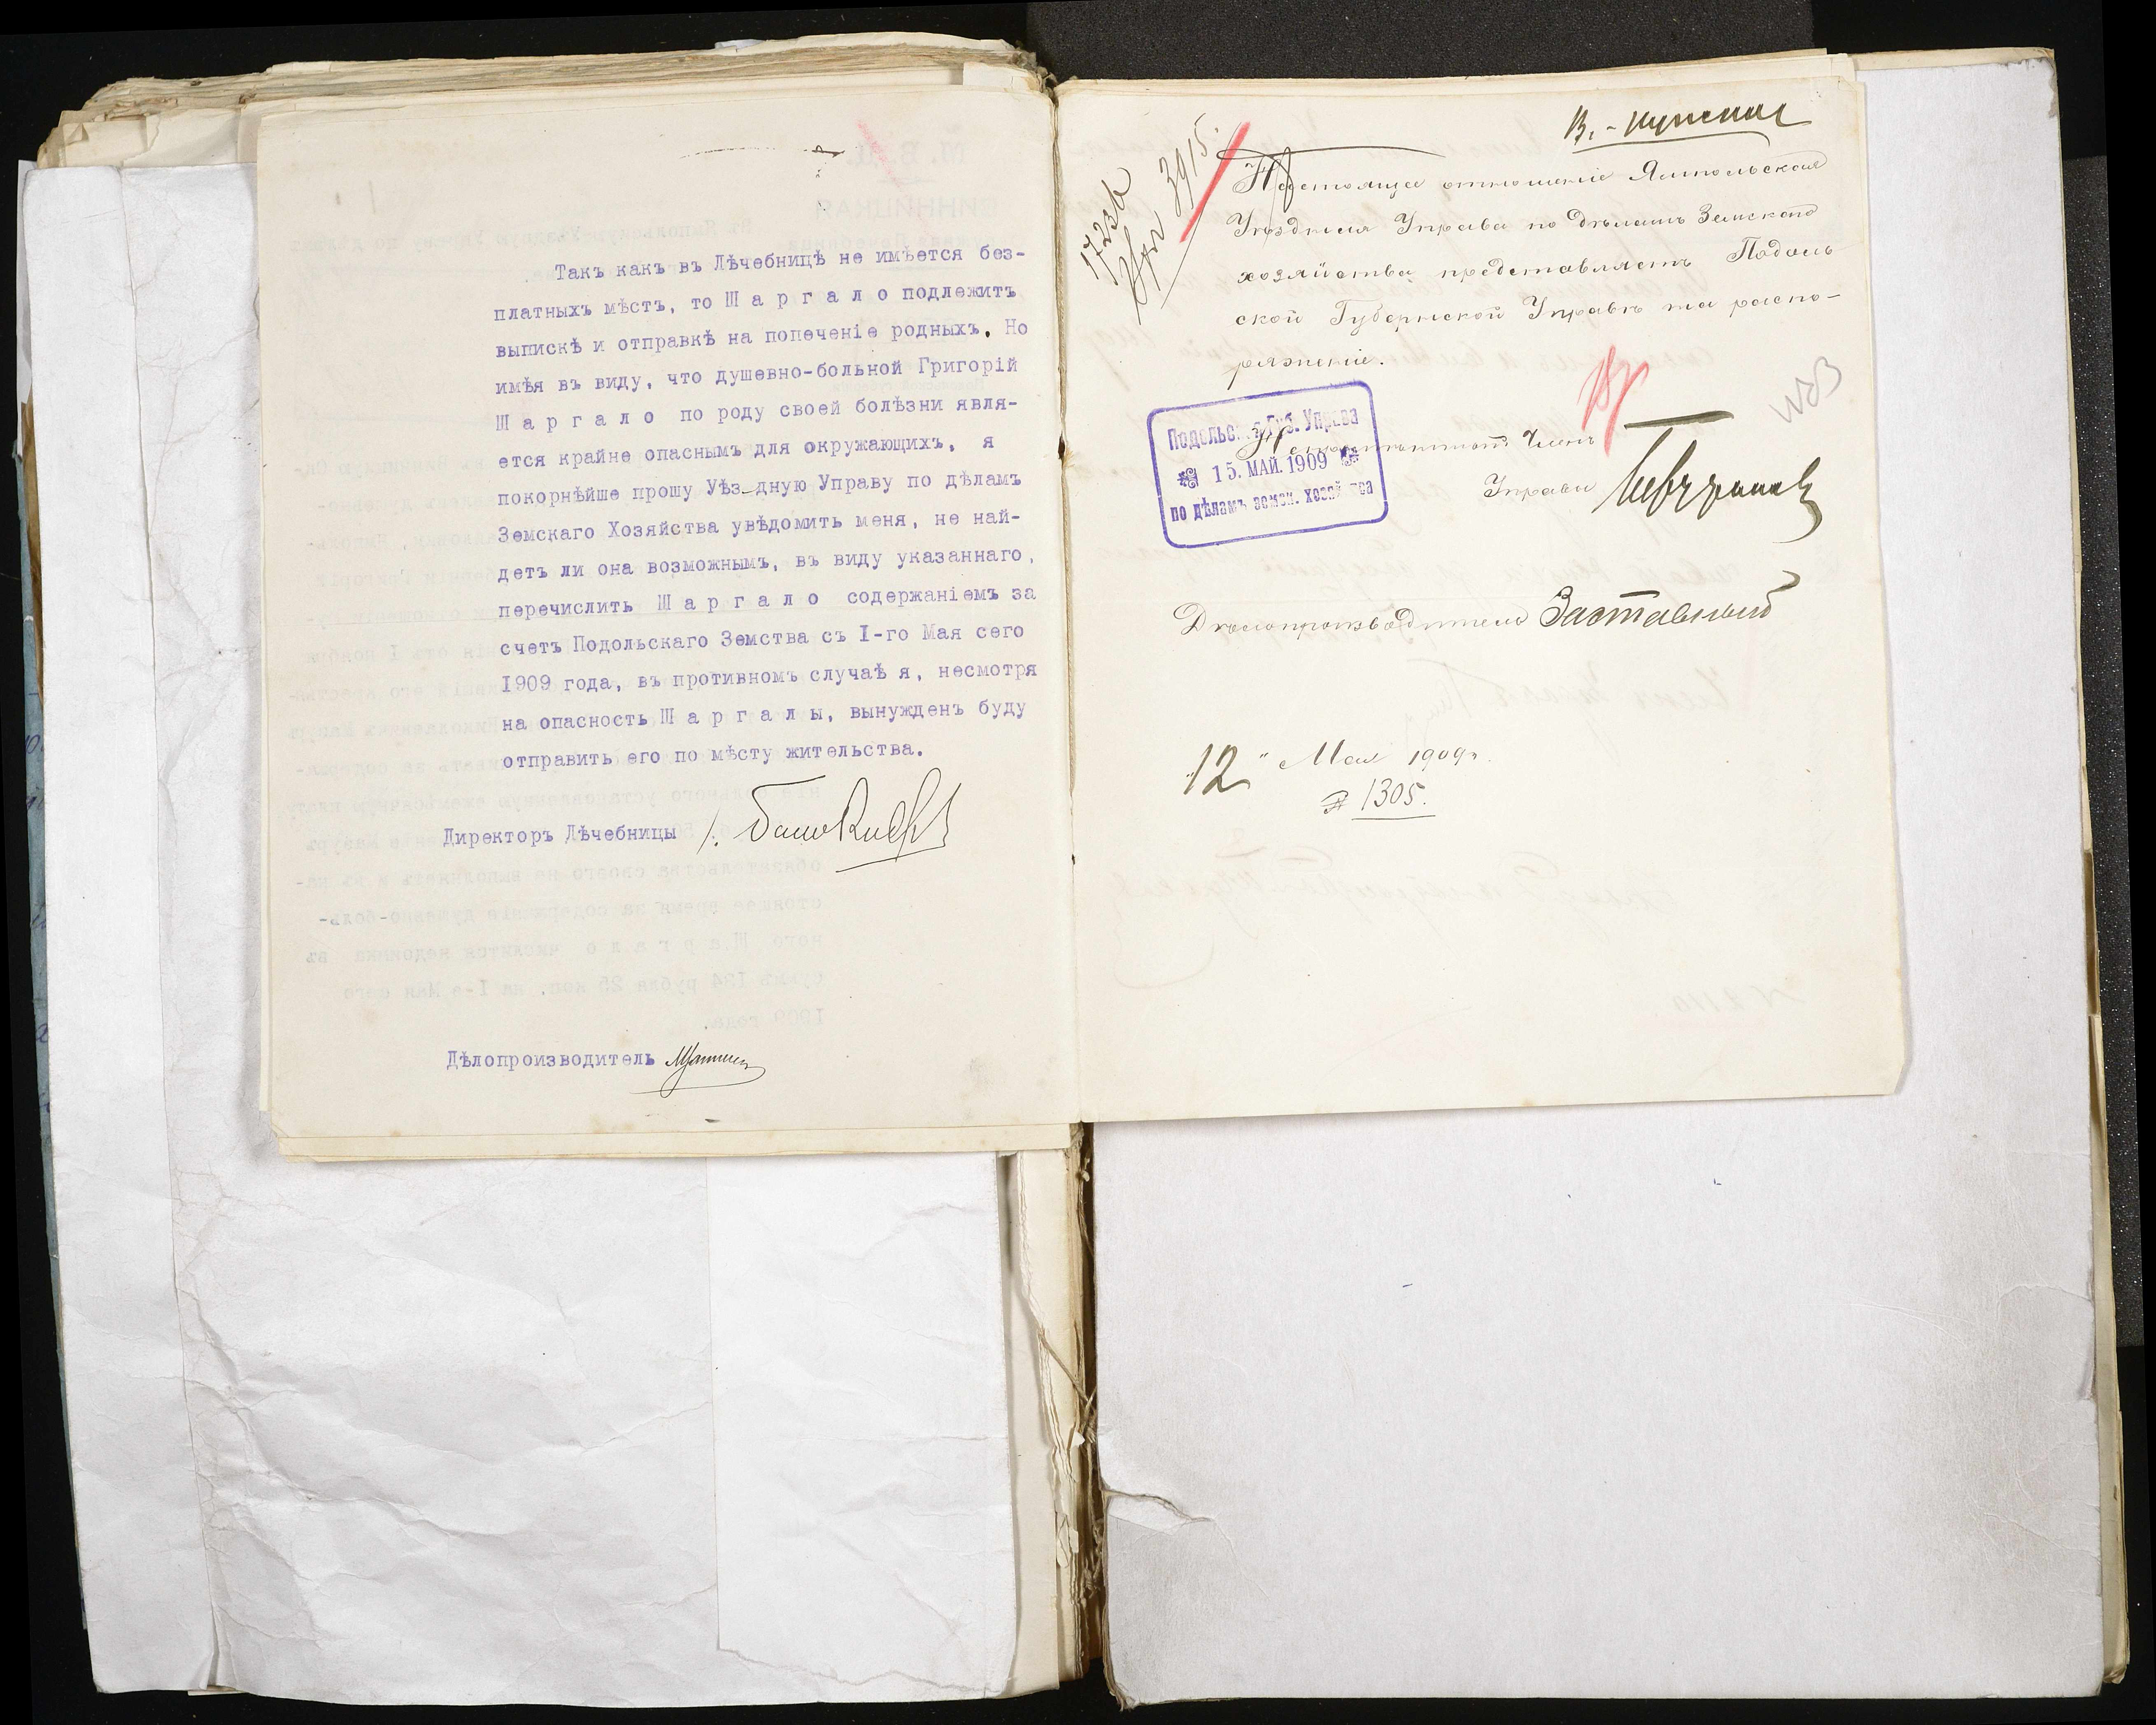 Такъ какъ въ Лѣчебницѣ не имѣется без-
платныхъ мѣстъ, то Шаргало подлежитъ
выпискѣ и отправкѣ на попеченіе родныхъ. Но
имѣя въ виду, что душевно-больной Григорій
Шаргало по роду своей болѣзни явля-
ется крайне опаснымъ для окружающихъ, я
покорнѣйше прошу Уѣздную Управу по дѣламъ
Земскаго Хозяйства увѣдомить меня, не най-
детъ ли она возможнымъ, въ виду указаннаго,
перечислить Шаргало содержаніемъ за
счетъ Подольскаго Земства съ I-го Мая сего
I909 года, въ противномъ случаѣ я, несмотря
на опасность Шаргалы, вынужденъ буду
отправить его по мѣсту жительства.
Директоръ Лѣчебницы
Дѣлопроизводитель
3915.
Настоящее отношеніе Ямпольская
Уѣздная Управа по дѣламъ Земскаго
хозяйства представляетъ Подоль
ской Губернской Управѣ на распо-
ряженіе.
Подольская Губ. Управа
15. МАЙ. 1909
по дѣламъ земск. хозяйства
Членъ
Управы
Дѣлопроизводитель Заставный
"12" Мая 1909 г.
№ 1305.